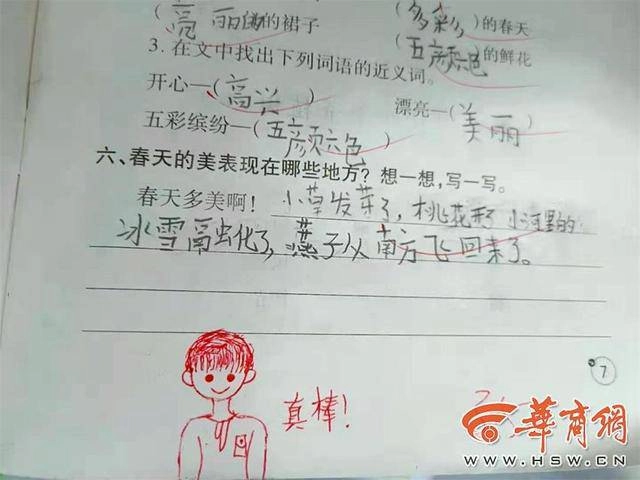 (亮丽的)的裙子 (多彩)的春天
3. 在文中找出下列词语的近义词。 (五颜六色)的鲜花
开心—(高兴) 漂亮—(美丽)
五彩缤纷—(五颜六色)
六、春天的美表现在哪些地方?想一想,写一写。
春天多美啊! 小草发芽了,桃花开了 小河里的
冰雪融化了,燕子从南方飞回来了。
真棒!
7
华商网
WWW.HSW.CN